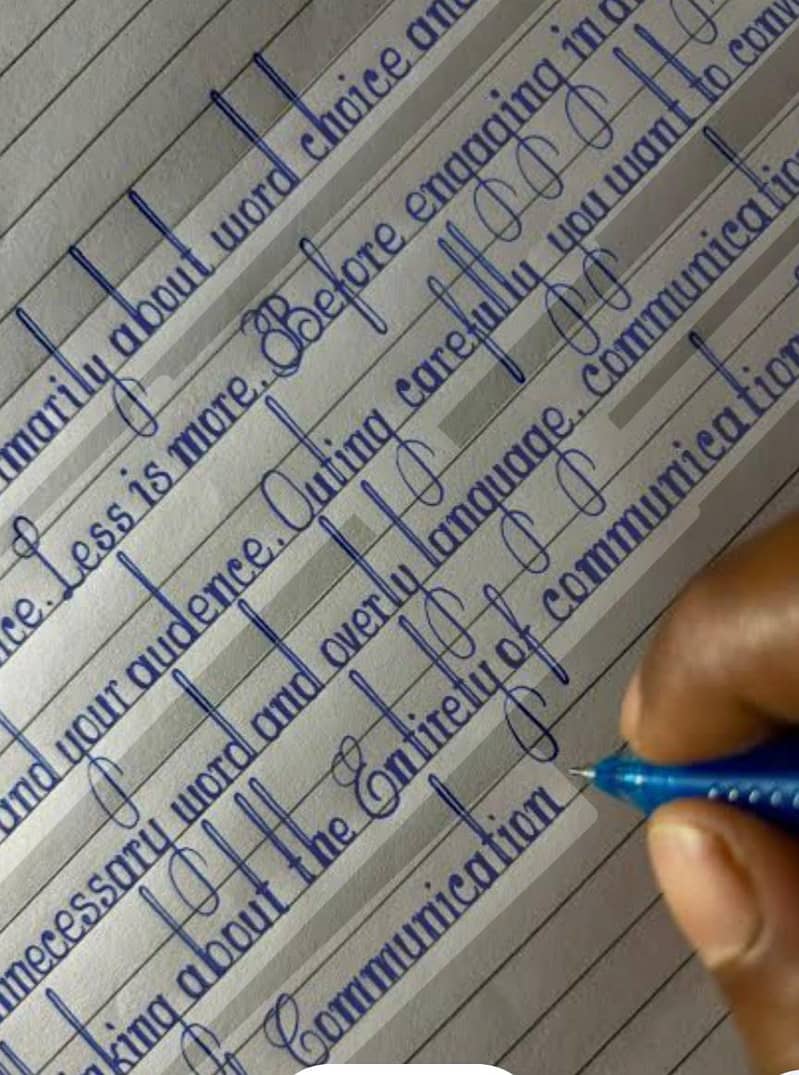 marily about word choice and
ce. Less is more. Before engaging in
and your audence. Outing carefully you want to conv
nnecessary word and overly language. communicatio
aking about the Entirety of communication
Communication